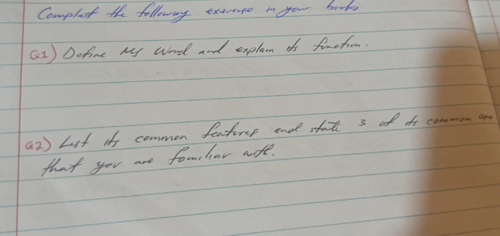 Complet the following exercise in your books
Q1) Define MS Word and explain its function.
Q2) List its common features and state 3 of its common
that you are familiar with.